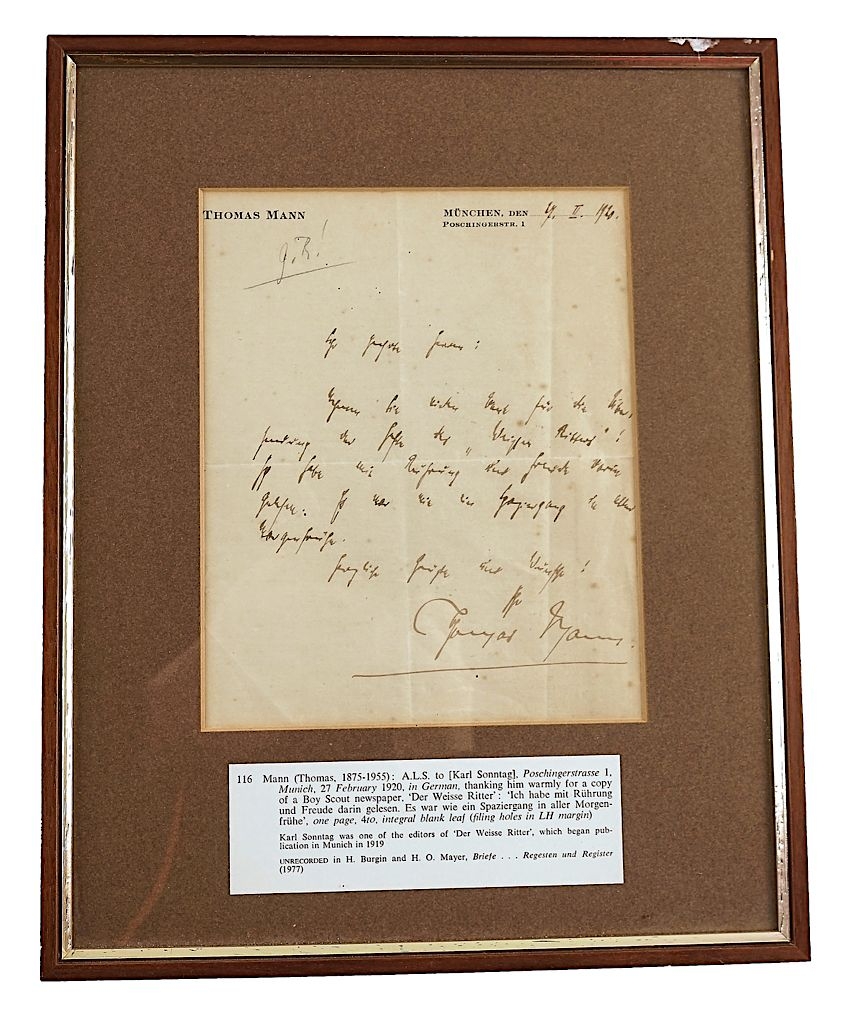 THOMAS MANN
MÜNCHEN, DEN 27. II. 1920.
POSCHINGERSTR. 1
Sehr geehrte Herren:
Nehmen Sie vielen Dank für die Über-
sendung der Hefte des „Weissen Ritters“!
Ich habe mit Rührung und Freude darin
gelesen. Es war wie ein Spaziergang in aller
Morgenfrühe.
Herzliche Grüße und Wünsche!
Ihr
Thomas Mann.
116 Mann (Thomas, 1875-1955): A.L.S. to [Karl Sonntag], Poschingerstrasse 1,
Munich, 27 February 1920, in German, thanking him warmly for a copy
of a Boy Scout newspaper, ‘Der Weisse Ritter’: ‘Ich habe mit Rührung
und Freude darin gelesen. Es war wie ein Spaziergang in aller Morgen-
frühe’, one page, 4to, integral blank leaf (filing holes in LH margin)
Karl Sonntag was one of the editors of ‘Der Weisse Ritter’, which began pub-
lication in Munich in 1919
UNRECORDED in H. Burgin and H. O. Mayer, Briefe . . . Regesten und Register
(1977)